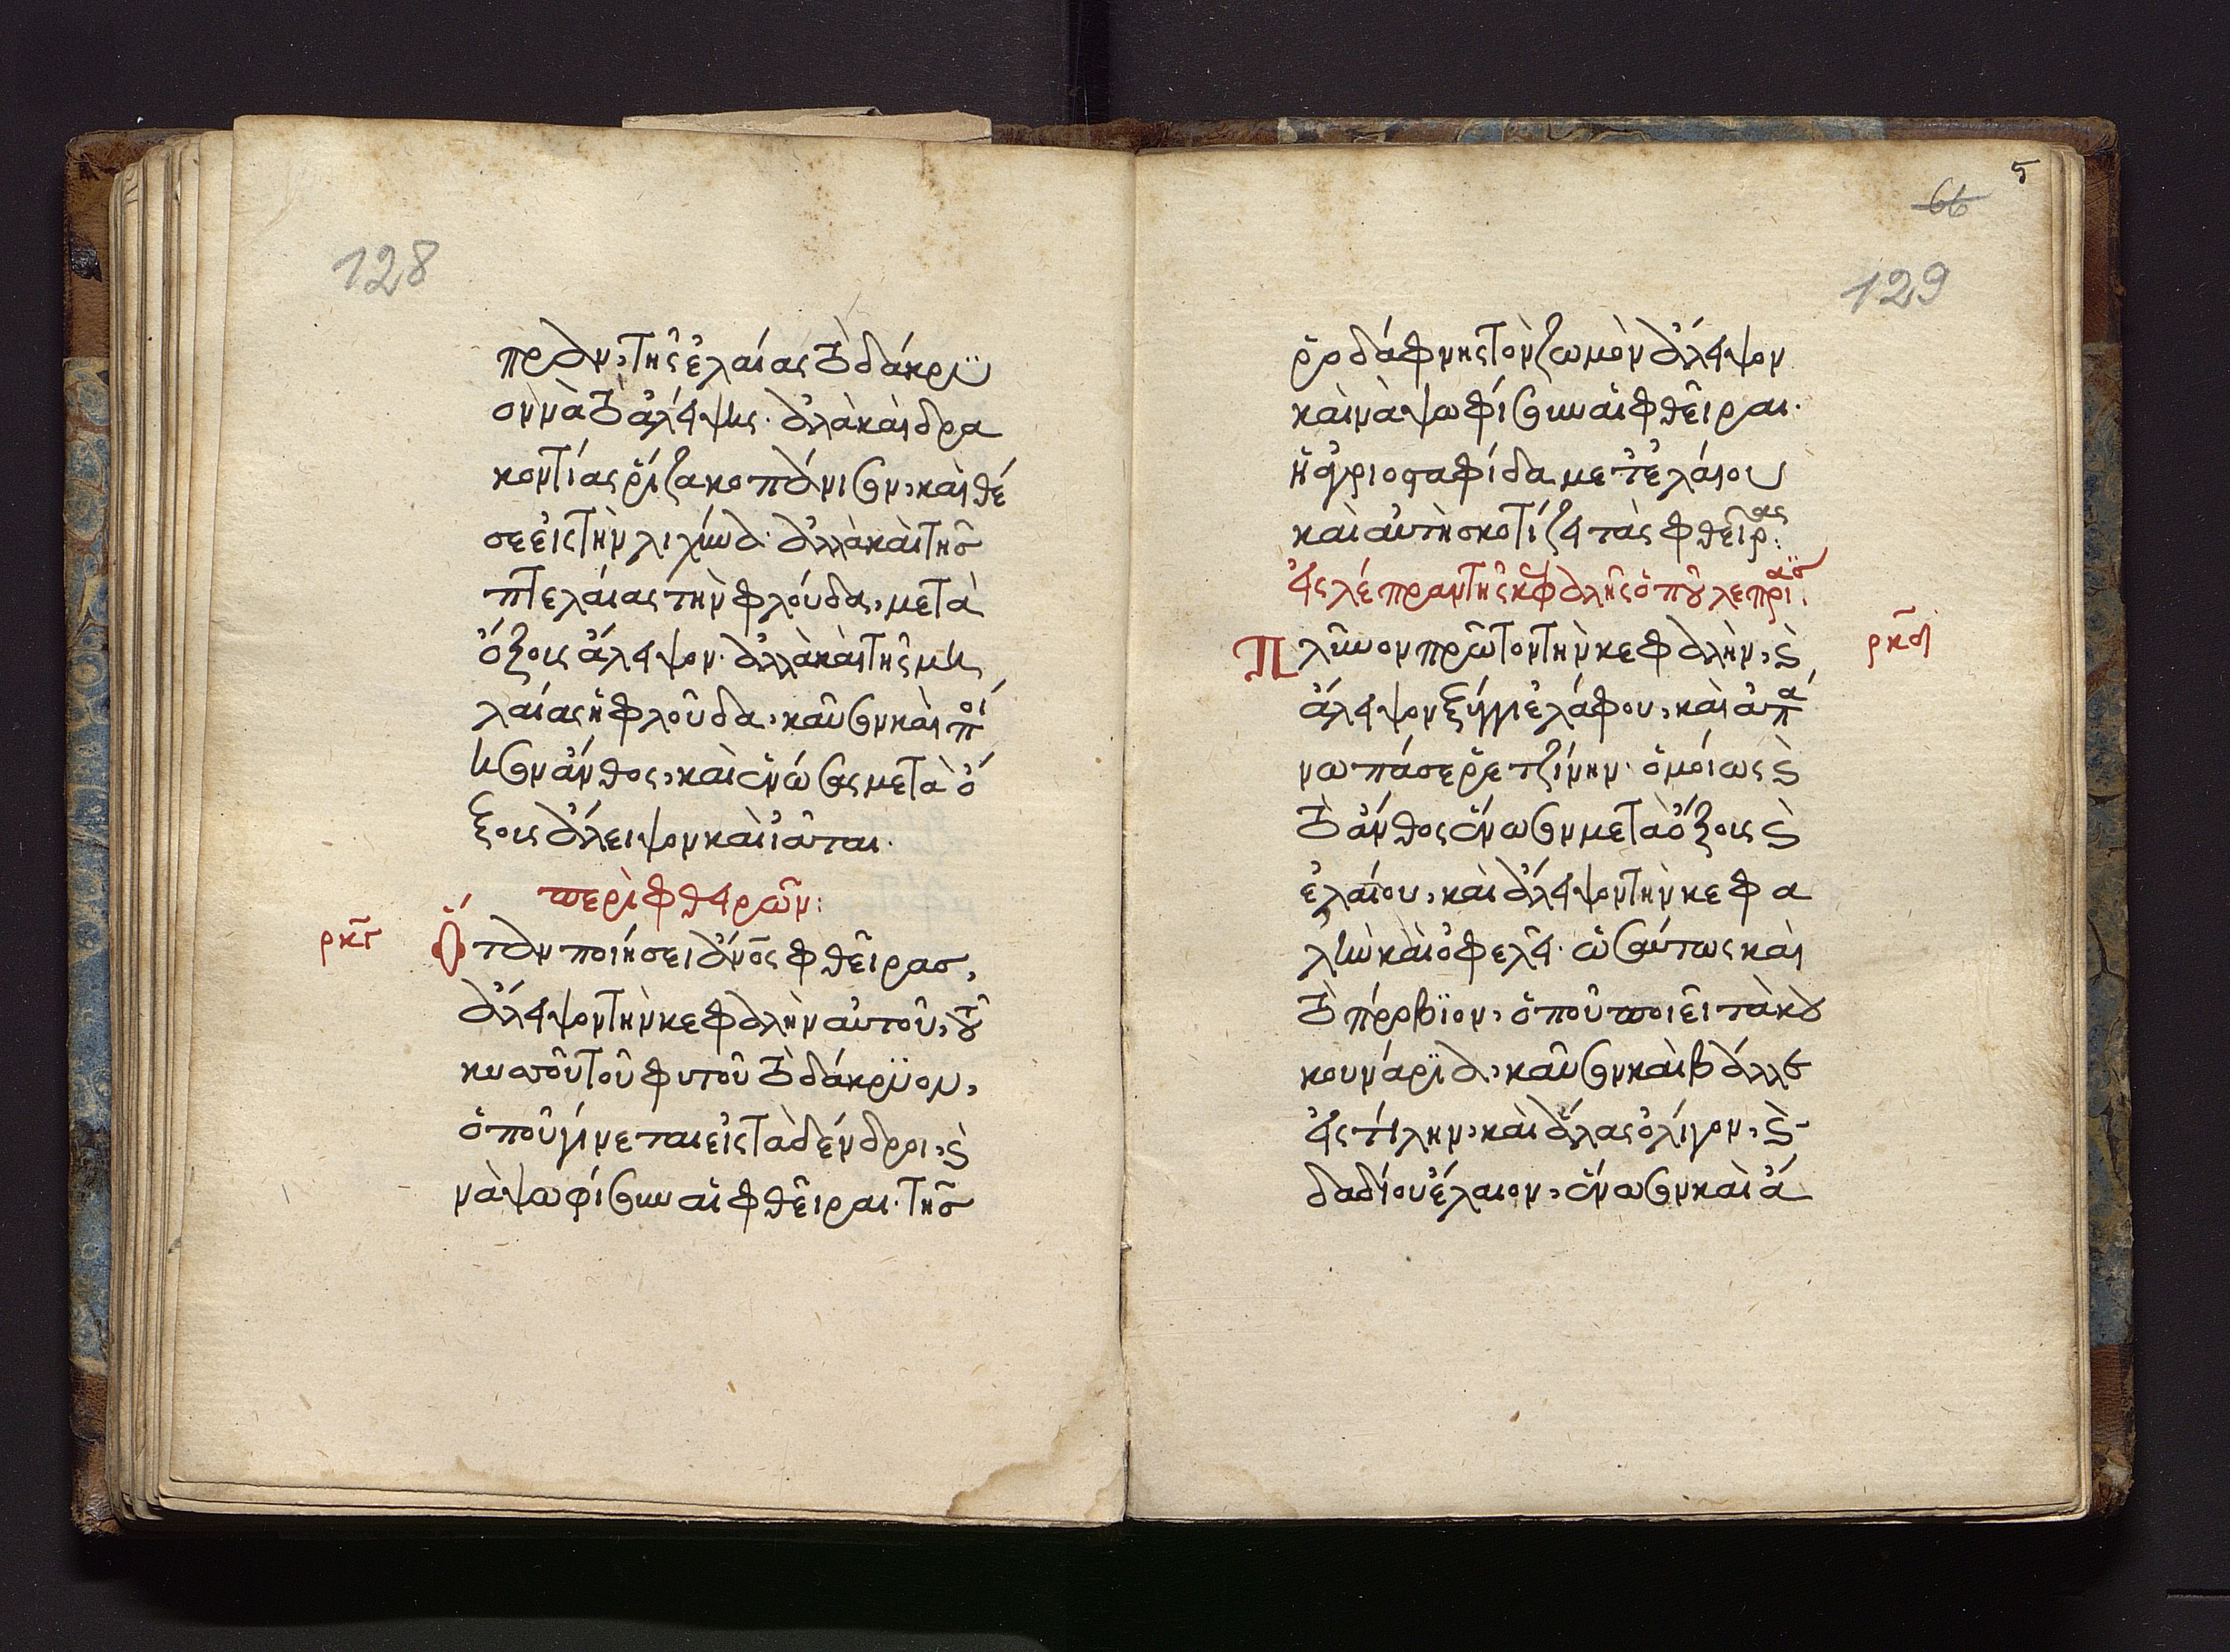 128
πρᾶν, τῆς ἐλαίας τὸ δάκρϋ
ον νὰ τὸ ἀλείψῃς. ἀλλὰ καὶ δρα
κοντίας ῥίζα κοπάνισον, καὶ θέ
σε εἰς τὴν λιχήνα. ἀλλὰ καὶ τῆς
πτελαίας τὴν φλούδα, μετὰ
ὄξους ἄλειψον. ἀλλὰ καὶ τῆς μη
λαίας ἡ φλοῦδα. καῦσον καὶ ποί
ησον ἄνθος, καὶ ἑνώσας μετὰ ὄ
ξους ἄλειψον καὶ ἰᾶται.
περὶ φθειρῶν:
ρκγ
Ὅταν ποιήσει ἄνος φθεῖρας,
ἄλειψον τὴν κεφαλὴν αὐτοῦ, τοῦ
κισσοῦ τοῦ φυτοῦ τὸ δάκρϋον,
ὁποῦ γίνεται εἰς τὰ δένδρη, καὶ
νὰ ψωφίσουν αἱ φθεῖραι. τῆς
5
66
129
ῥοδάφνης τὸν ζωμὸν ἄλειψον
καὶ νὰ ψωφίσουν αἱ φθεῖραι.
ἢ ἀγριοσταφίδα μετ' ἐλαίου
καὶ αὐτὴ σκοτίζει τὰς φθεῖρας:
εἰς λέπραν τῆς κεφαλῆς ὁποῦ λεπριάς.
ρκδ
Πλῦνον πρῶτον τὴν κεφαλὴν, καὶ
ἄλειψον ξύγγι ἐλάφου, καὶ ἀπά
νω πάσε ῥετζίνην. ὁμοίως καὶ
τὸ ἄνθος ἕνωσον μετὰ ὄξους καὶ
ἐλαίου, καὶ ἄλειψον τὴν κεφα
λὴν καὶ ὀφελεῖ. ὡσαύτως καὶ
τὸ πρόβϊον, ὁποῦ ποιεῖ τὰ κου
κουνάρϊα, καῦσον καὶ βάλλε
εἰς τίλην, καὶ ἅλας ὀλίγον, καὶ
δαδίου ἔλαιον, ἕνωσον καὶ ἄ